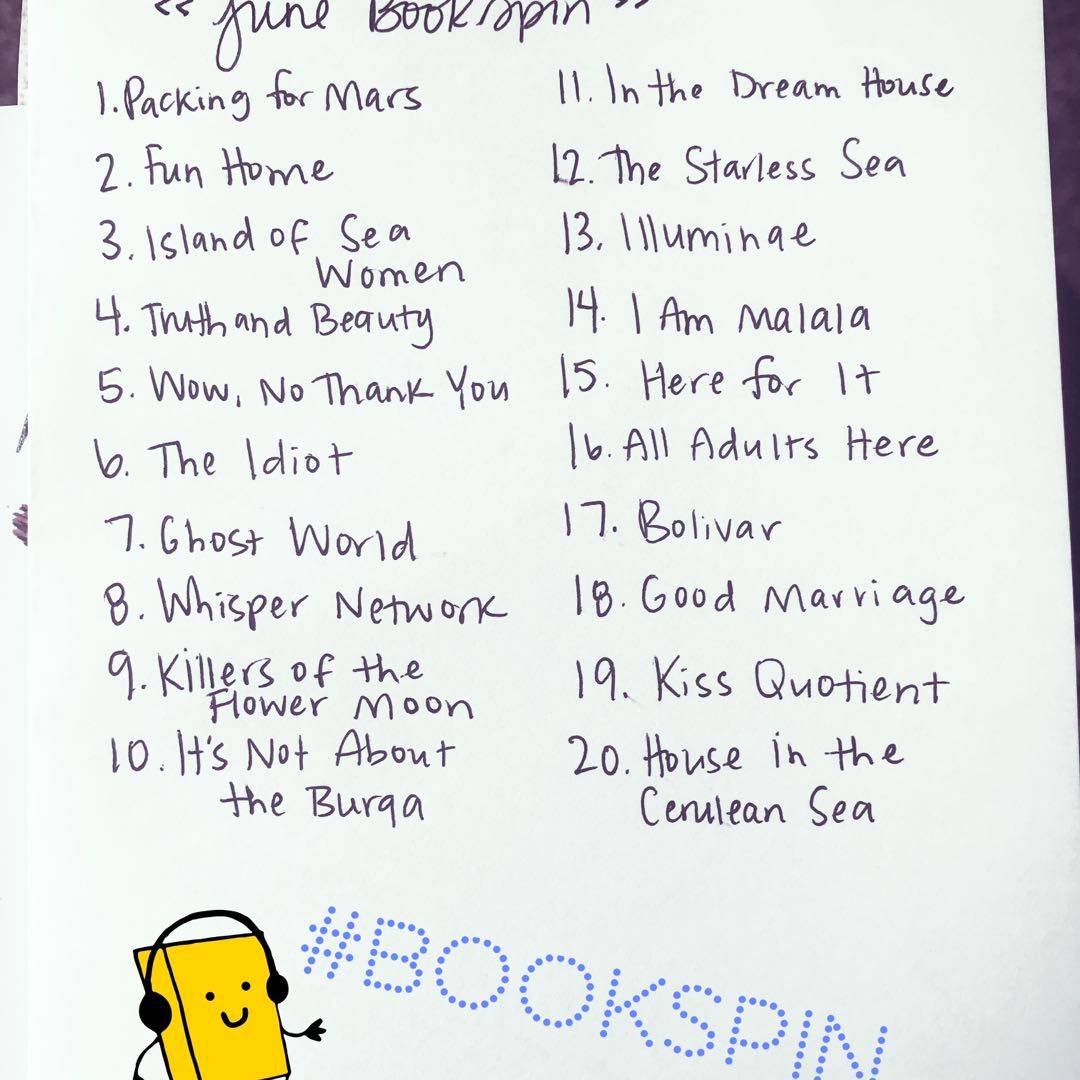 “ June Bookspin ”
1. Packing for Mars
2. Fun Home
3. Island of Sea
Women
4. Truth and Beauty
5. Wow, No Thank You
6. The Idiot
7. Ghost World
8. Whisper Network
9. Killers of the
Flower Moon
10. It's Not About
the Burqa
11. In the Dream House
12. The Starless Sea
13. Illuminae
14. I Am Malala
15. Here for It
16. All Adults Here
17. Bolivar
18. Good Marriage
19. Kiss Quotient
20. House in the
Cerulean Sea
#BOOKSPIN